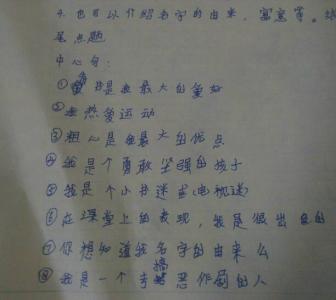 4. 也可以介绍名字的由来，寓意等。结
尾点题
中心句：
①看书是我最大的爱好
②我热爱运动
③粗心是我最大的缺点
④我是个勇敢坚强的孩子
⑤我是个小书迷（电视迷）
⑥在课堂上的表现，我是很出色的
⑦你想知道我名字的由来么
⑧我是一个 搞恶作剧的人